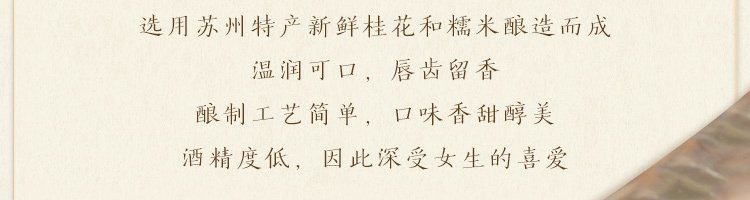 选用苏州特产新鲜桂花和糯米酿造而成
温润可口，唇齿留香
酿制工艺简单，口味香甜醇美
酒精度低，因此深受女生的喜爱